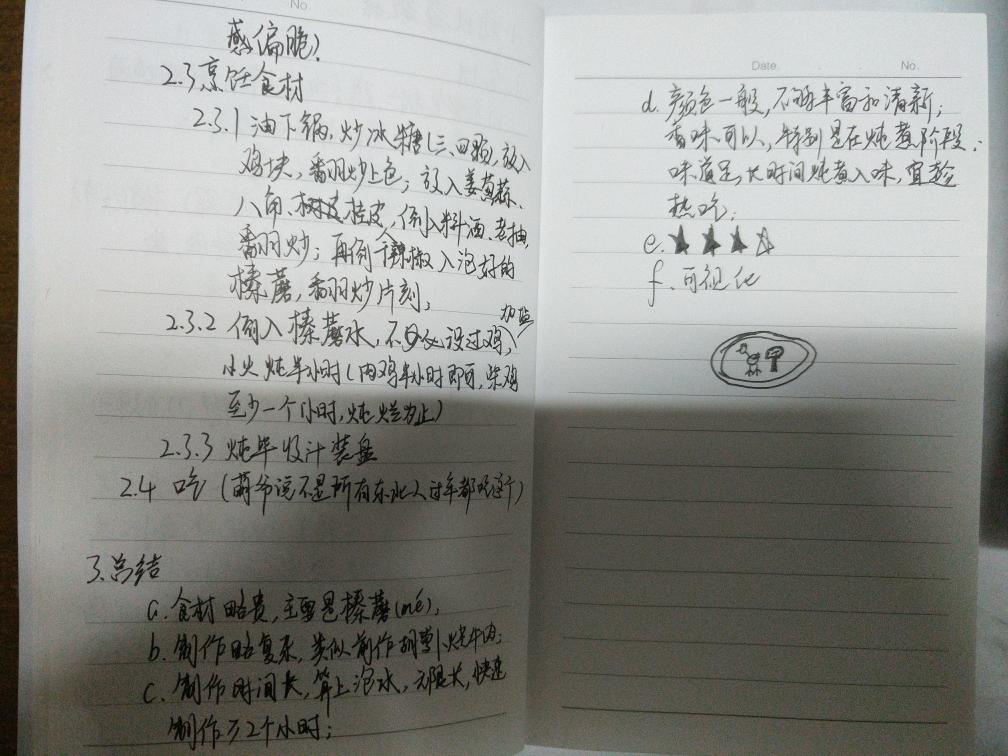 感偏脆？
2.3 烹饪食材
2.3.1 油下锅，炒冰糖(三、四颗)，放入
鸡块，翻炒上色；放入姜葱蒜、
八角、桂皮，倒入料酒、老抽，
翻炒；再倒干辣椒入泡好的
榛蘑，翻炒片刻；
2.3.2 倒入榛蘑水，不必没过鸡，加盐
小火炖半小时(肉鸡半小时即可，柴鸡
至少一个小时，炖烂为止)
2.3.3 炖毕收汁装盘
2.4 吃 (萌爷说不是所有东北人过年都吃这个)
3.总结
a. 食材略贵，主要是榛蘑(mó)，
b. 制作略复杂，类似前作胡萝卜烧牛肉；
c. 制作时间长，算上泡水，无限长，快速
制作≥2个小时；
Date. No.
d. 颜色一般，不够丰富和清新；
香味可以，特别是在炖煮阶段；
味道足，长时间炖煮入味，宜趁
热吃；
e. ★★★☆
f. 可视化